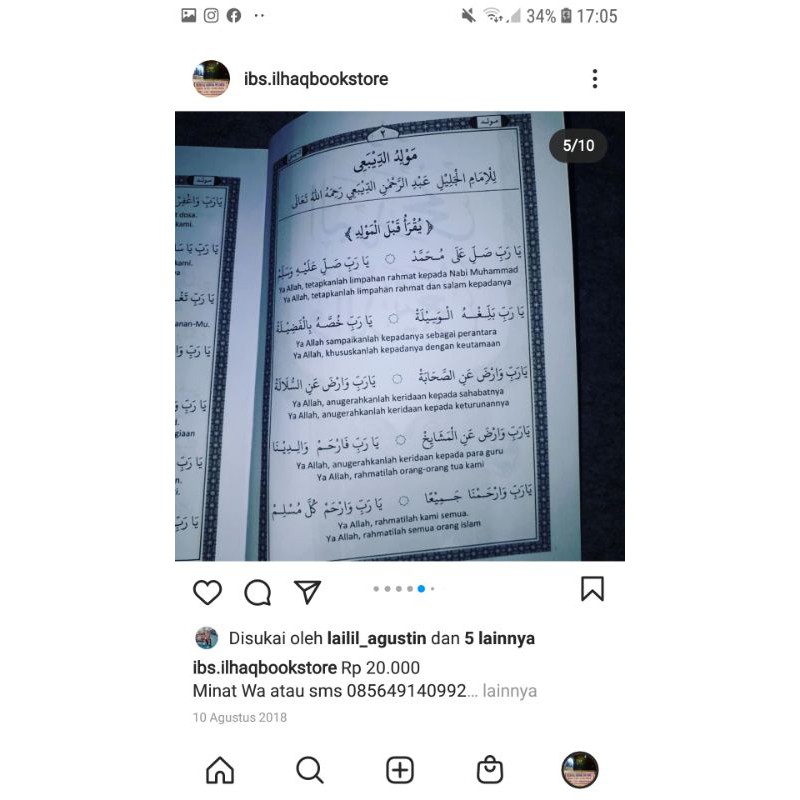 34% 17:05
ibs.ilhaqbookstore
5/10
مولد
٢
مَوْلِدُ الدِّيْبَعِى
لِلْاِمَامِ الْجَلِيْلِ عَبْدِ الرَّحْمٰنِ الدِّيْبَعِي رَحِمَهُ اللّٰهُ تَعَالَى
﴿ يُقْرَأُ قَبْلَ الْمَوْلِدِ ﴾
يَا رَبِّ صَلِّ عَلَى مُحَمَّدْ ۞ يَا رَبِّ صَلِّ عَلَيْهِ وَسَلِّمْ
Ya Allah, tetapkanlah limpahan rahmat kepada Nabi Muhammad
Ya Allah, tetapkanlah limpahan rahmat dan salam kepadanya
يَا رَبِّ بَلِّغْهُ الْوَسِيْلَةْ ۞ يَا رَبِّ خُصَّهُ بِالْفَضِيْلَةْ
Ya Allah sampaikanlah kepadanya sebagai perantara
Ya Allah, khususkanlah kepadanya dengan keutamaan
يَارَبِّ وَارْضَ عَنِ الصَّحَابَةْ ۞ يَارَبِّ وَارْضَ عَنِ السُّلَالَةْ
Ya Allah, anugerahkanlah keridaan kepada sahabatnya
Ya Allah, anugerahkanlah keridaan kepada keturunannya
يَارَبِّ وَارْضَ عَنِ الْمَشَايِخْ ۞ يَا رَبِّ فَارْحَمْ وَالِدِيْنَا
Ya Allah, anugerahkanlah keridaan kepada para guru
Ya Allah, rahmatilah orang-orang tua kami
يَارَبِّ وَارْحَمْنَا جَمِيْعًا ۞ يَا رَبِّ وَارْحَمْ كُلَّ مُسْلِمْ
Ya Allah, rahmatilah kami semua.
Ya Allah, rahmatilah semua orang islam
مولد
يَارَبِّ وَاغْفِرْ
dosa.
kami.
kami.
anan-Mu.
giaan
Disukai oleh lailil_agustin dan 5 lainnya
ibs.ilhaqbookstore Rp 20.000
Minat Wa atau sms 085649140992... lainnya
10 Agustus 2018